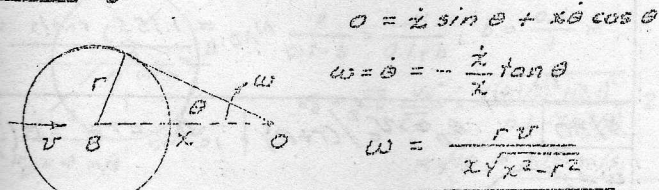 0 = ẋ sin θ + xθ̇ cos θ
ω = θ̇ = - ẋ/x tan θ
ω = r v / x√x²-r²
r
θ
ω
v
B
x
O